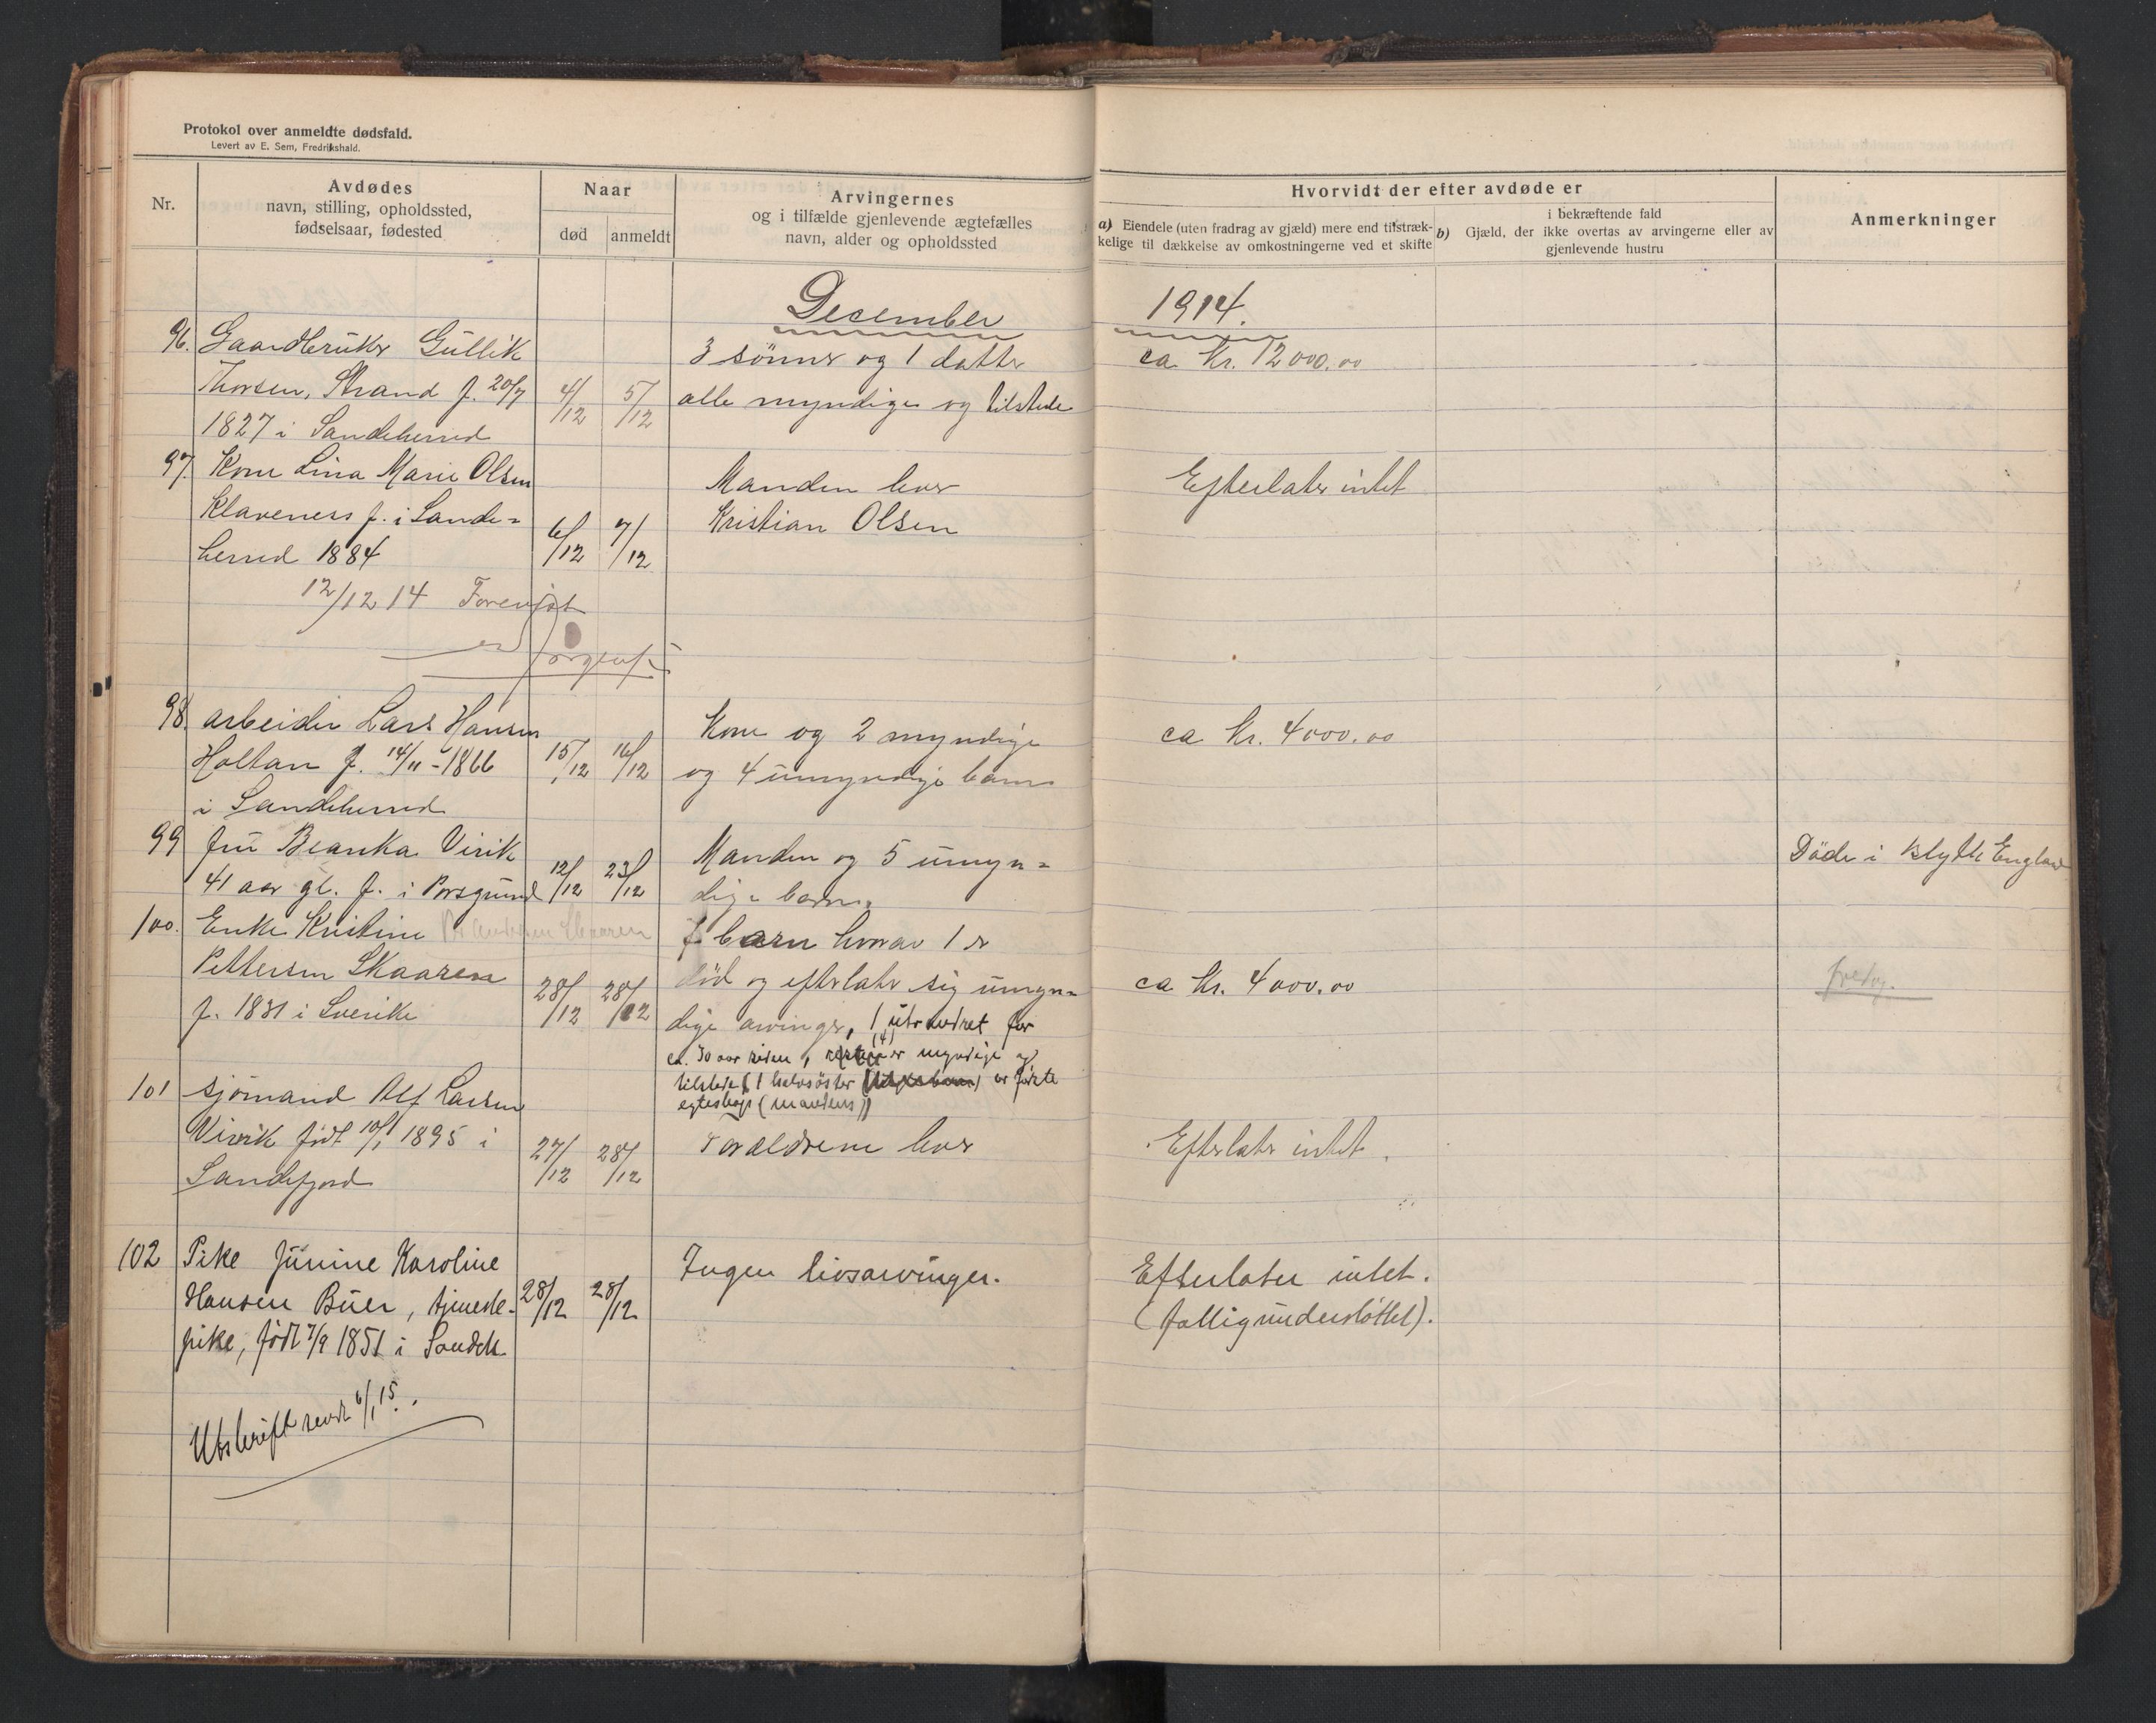 Protokol over anmeldte dødsfald.
Levert av E. Sem, Fredrikshald.
Nr.
Avdødes
navn, stilling, opholdssted,
fødselsaar, fødested
Naar
død
anmeldt
Arvingernes
og i tilfælde gjenlevende ægtefælles
navn, alder og opholdssted
Hvorvidt der efter avdøde er
a) Eiendele (uten fradrag av gjæld) mere end tilstræk-
kelige til dækkelse av omkostningerne ved et skifte
i bekræftende fald
b) Gjæld, der ikke overtas av arvingerne eller av
gjenlevende hustru
Anmerkninger
December 1914.
96. Gaardbruker Gullik 3 sønner og 1 datter ca Kr. 12000.00
Thorsen, Strand f. 20/7 4/12 5/12 alle myndige og tilstede
1827 i Sandeherred
97. Kone Lina Marie Olsen Manden lever Efterlater intet
Klaveness f. i Sande= 6/12 7/12 Kristian Olsen
herred 1884
12/12 14
98. arbeider Lars Hansen Kone og 2 myndige ca Kr. 4000.00
Holtan f. 14/11-1866 15/12 16/12 og 4 umyndige barn
i Sandeherred
99 fru Beanka Virik Manden og 5 umyn= Døde i Blyth England
41 aar gl. f. i Porsgrund 12/12 23/12 dige barn.
100. Enke Kristine barn hvorav 1 er
Pettersen Skaaren 28/12 28/12 død og efterlater sig umyn= ca Kr. 4000.00
f. 1831 i Sverike dige arvinger, 1 utvandret for
ca. 30 aar siden, (4) er myndige og
tilstede (1 halvsøster er første
egteskap (mandens))
101 sjømand Alf Larsen
Virik født 10/1 1895 i 27/12 28/12 Forældrene lever Efterlater intet.
Sandefjord
102 Pike Junine Karoline Ingen livsarvinger. Efterlater intet.
Hansen Buer, tjeneste- 28/12 28/12 (fattigunderstøttet).
pike, født 7/9 1851 i Sandeh.
Utskrift sendt 6/1 15.